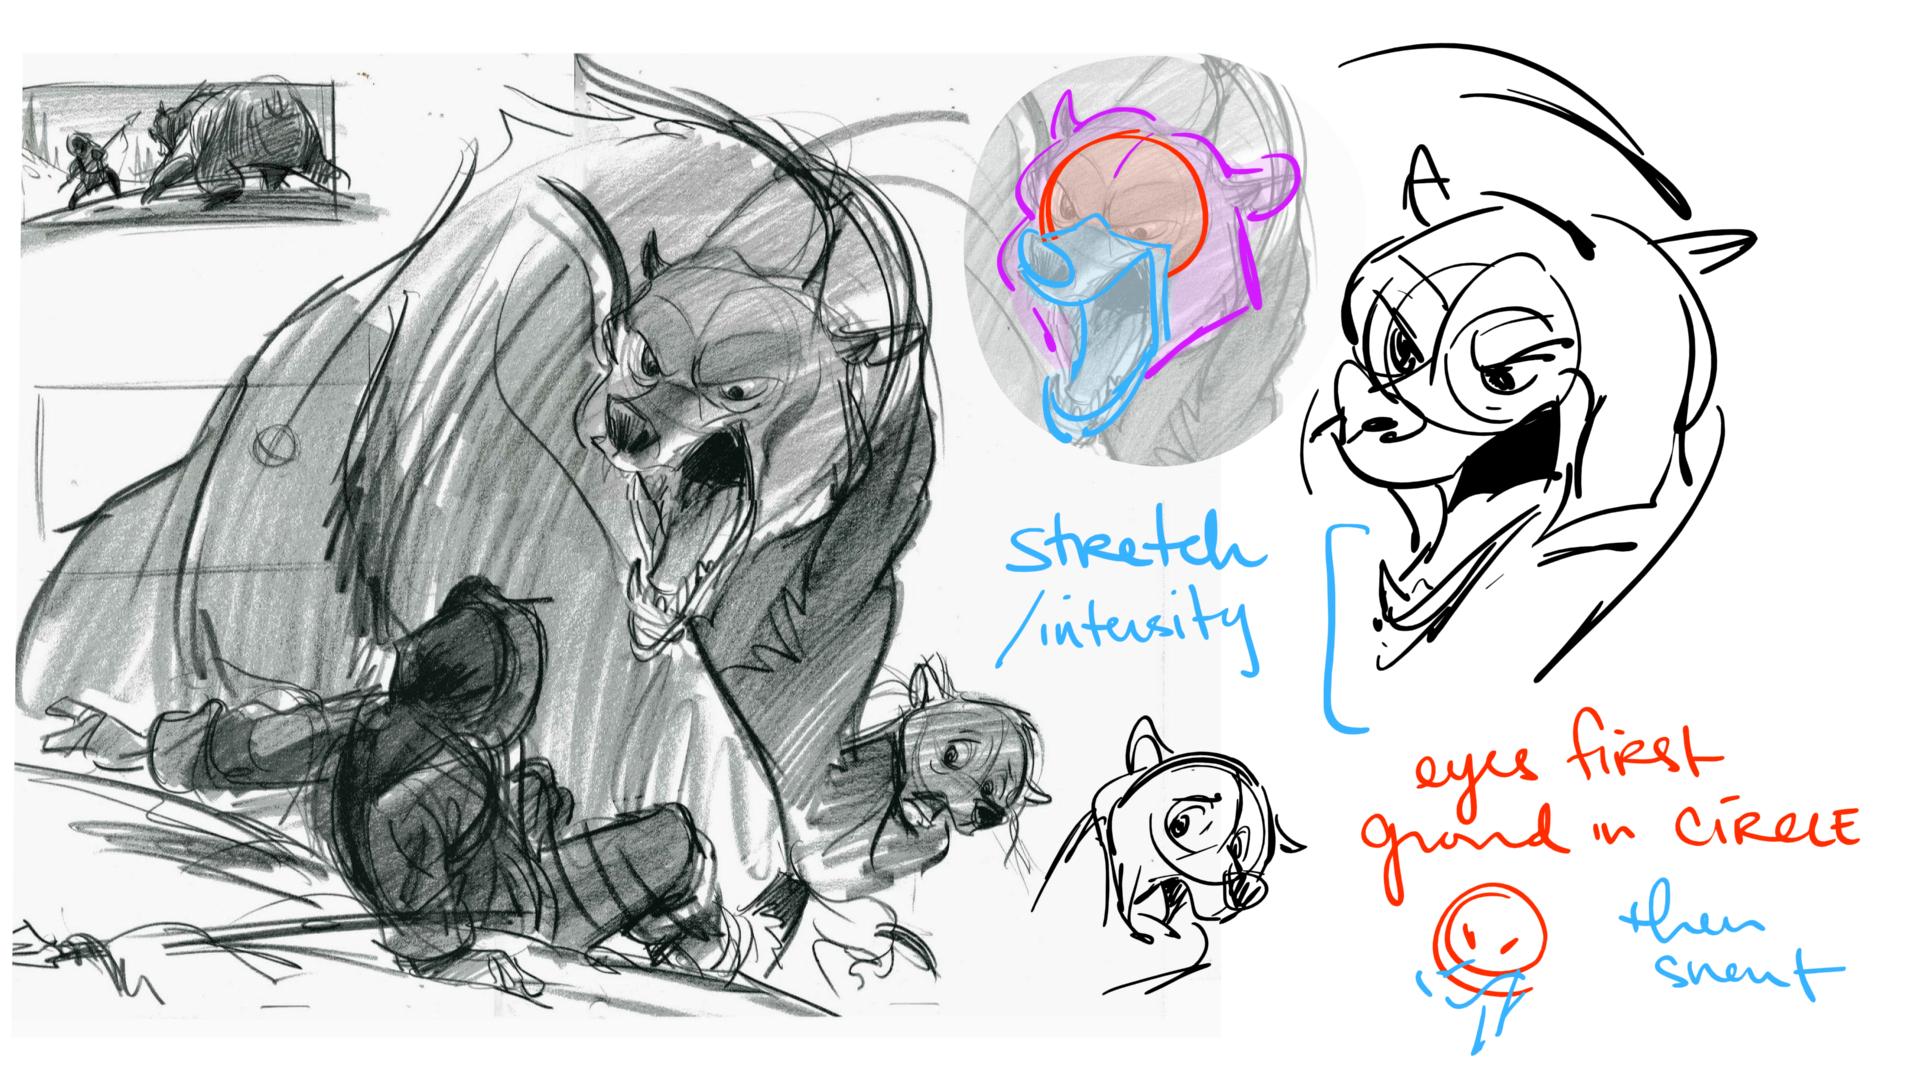 stretch
/intensity
eyes first
ground in CIRCLE
then
snout